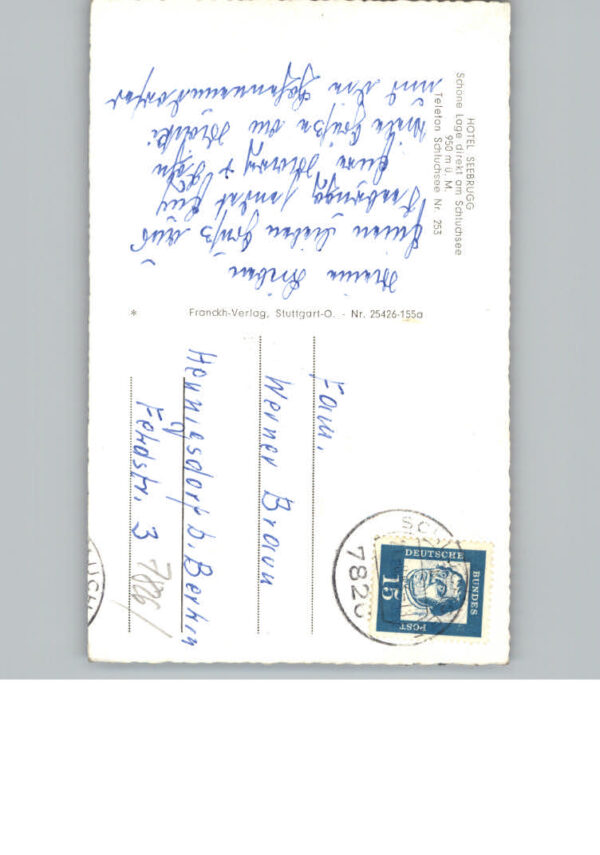 HOTEL SEEBRUGG
Schöne Lage direkt am Schluchsee
950 m ü. M.
Telefon Schluchsee Nr. 253
Meine Lieben
Einen lieben Gruß aus
Seebrugg sendet Euch
Eure
Viele Grüße an
und den
Franckh-Verlag, Stuttgart-O. - Nr. 25426-155a
*
Fam.
Werner Braun
Hennigsdorf b. Berlin
Feldstr. 3
DEUTSCHE
BUNDES
POST
15
7820